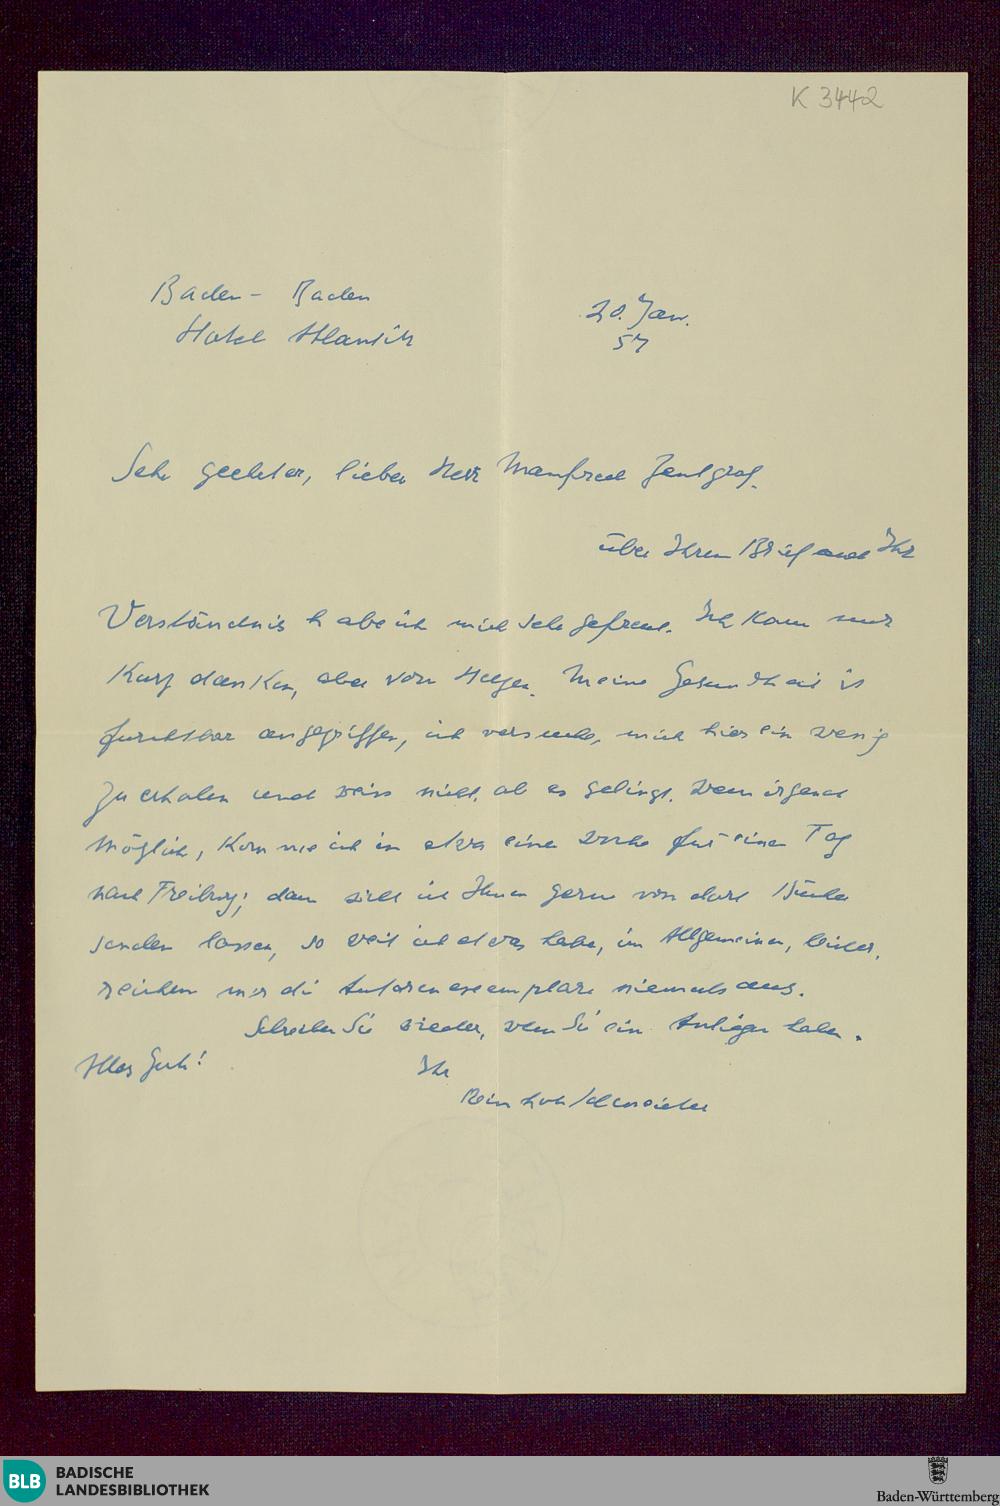 K 3442
Baden-Baden
Hotel Atlantik
20. Jan.
57
Sehr geehrter, lieber Herr Manfred Zentgraf.
über Ihren Brief und Ihr
Verständnis habe ich mich sehr gefreut. Ich kann nur
kurz danken, aber von Herzen. Meine Gesundheit ist
furchtbar angegriffen, ich versuche, mich hier ein wenig
zu erholen und weiss nicht, ob es gelingt. Wenn irgend
möglich, komme ich in etwa einer Woche für einen Tag
nach Freiburg; dann will ich Ihnen gerne von dort Bücher
senden lassen, so weit ich etwas habe, im Allgemeinen, leider,
reichen mir die Autorenexemplare niemals aus.
Schreiben Sie wieder, wenn Sie ein Anliegen haben.
Alles Gute!
Ihr
Reinhold Schneider
BLB
BADISCHE
LANDESBIBLIOTHEK
Baden-Württemberg